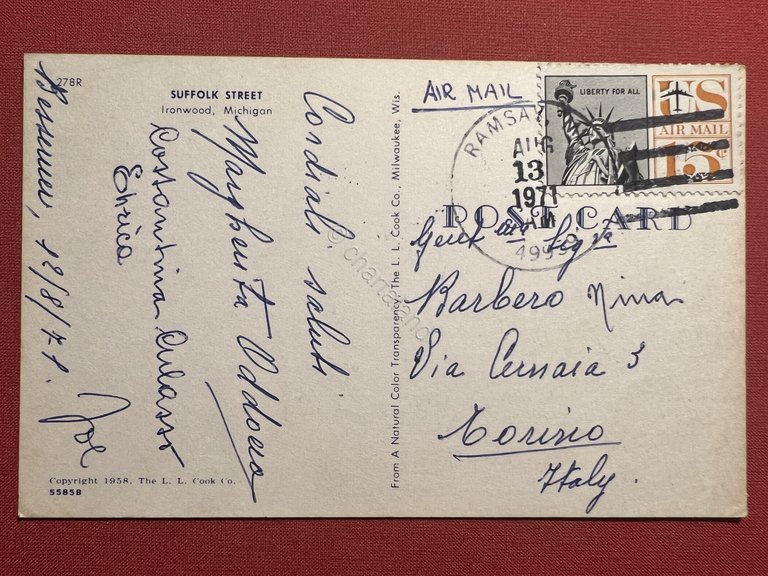 278R
SUFFOLK STREET
Ironwood, Michigan
Bessemer, 12/8/71.
Cordiali saluti
Margherita Oddono
Costantina
Enrica
Joe
Copyright 1958, The L. L. Cook Co.
5585B
From A Natural Color Transparency, The L. L. Cook Co., Milwaukee, Wis.
AIR MAIL
LIBERTY FOR ALL
US
AIR MAIL
15¢
RAMSAY
AUG
13
AM
1971
POST CARD
Gent.ma Sig.na
Barbero Nina
Via Cernaia 3
Torino
Italy.